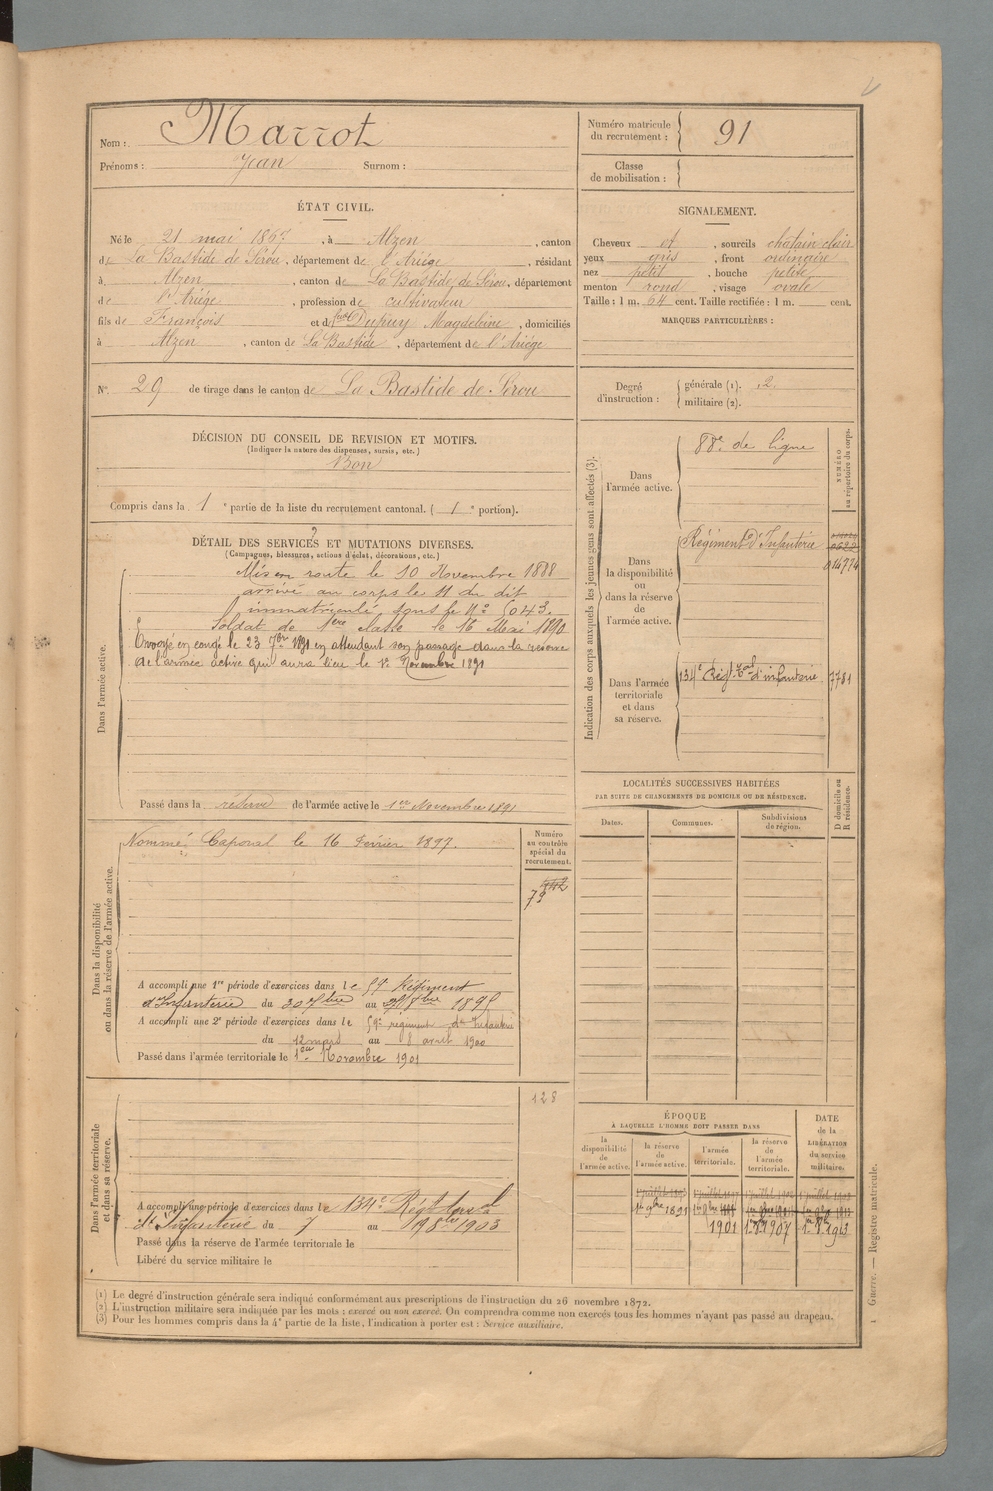 Nom : Marrot
Prénoms : Jean Surnom :
Numéro matricule
du recrutement : 91
Classe
de mobilisation :
ÉTAT CIVIL.
Né le 21 mai 1867, à Alzen, canton
de La Bastide de Sérou, département de l'Ariège, résidant
à Alzen, canton de La Bastide de Sérou, département
de l'Ariège, profession de cultivateur
fils de François et de Dupuy Magdeleine, domiciliés
à Alzen, canton de La Bastide, département de l'Ariège
N° 29 de tirage dans le canton de La Bastide de Sérou
SIGNALEMENT.
Cheveux et, sourcils chatain clair
yeux gris, front ordinaire
nez petit, bouche petite
menton rond, visage ovale
Taille : 1 m. 64 cent. Taille rectifiée : 1 m. cent.
MARQUES PARTICULIÈRES :
Degré
d'instruction :
générale (1). 2
militaire (2).
DÉCISION DU CONSEIL DE REVISION ET MOTIFS.
(Indiquer la nature des dispenses, sursis, etc.)
Bon
Compris dans la 1e partie de la liste du recrutement cantonal. (1e portion).
DÉTAIL DES SERVICES ET MUTATIONS DIVERSES.
(Campagnes, blessures, actions d'éclat, décorations, etc.)
Dans l'armée active.
Mis en route le 10 Novembre 1888
arrivé au corps le 11 du dit
immatriculé sous le N° 5043.
Soldat de 1ère classe le 16 Mai 1890
Envoyé en congé le 23 7bre 1891 en attendant son passage dans la réserve
de l'armée active qui aura lieu le 1er Novembre 1891
Passé dans la réserve de l'armée active le 1er Novembre 1891
Dans la disponibilité
ou dans la réserve de l'armée active.
Nommé Caporal le 16 Février 1897.
Numéro
au contrôle
spécial du
recrutement.
A accompli une 1re période d'exercices dans le 59e Régiment
d'Infanterie du 30 7bre au 1895
A accompli une 2e période d'exercices dans le 59e régiment d'Infanterie
du 12 mars au 8 avril 1900
Passé dans l'armée territoriale le 1er Novembre 1901
Dans l'armée territoriale
et dans sa réserve.
128
A accompli une période d'exercices dans le 134e Régt terral
d'Infanterie du 7 au 1903
Passé dans la réserve de l'armée territoriale le
Libéré du service militaire le
Indication des corps auxquels les jeunes gens sont affectés (3).
NUMÉRO
au répertoire du corps.
Dans
l'armée active.
88e de ligne
Dans
la disponibilité
ou
dans la réserve
de
l'armée active.
Régiment d'Infanterie
Dans l'armée
territoriale
et dans
sa réserve.
134e Régt Tal d'infanterie 7781
LOCALITÉS SUCCESSIVES HABITÉES
PAR SUITE DE CHANGEMENTS DE DOMICILE OU DE RÉSIDENCE.
Dates. Communes. Subdivisions
de région.
D domicile ou
R résidence.
ÉPOQUE
A LAQUELLE L'HOMME DOIT PASSER DANS
DATE
de la
LIBÉRATION
du service
militaire.
la
disponibilité
de
l'armée active.
la réserve
de
l'armée active.
l'armée
territoriale.
la réserve
de
l'armée
territoriale.
1er 9bre 1891
1901
(1) Le degré d'instruction générale sera indiqué conformément aux prescriptions de l'instruction du 26 novembre 1872.
(2) L'instruction militaire sera indiquée par les mots : exercé ou non exercé. On comprendra comme non exercés tous les hommes n'ayant pas passé au drapeau.
(3) Pour les hommes compris dans la 4e partie de la liste, l'indication à porter est : Service auxiliaire.
Guerre. — Registre matricule.